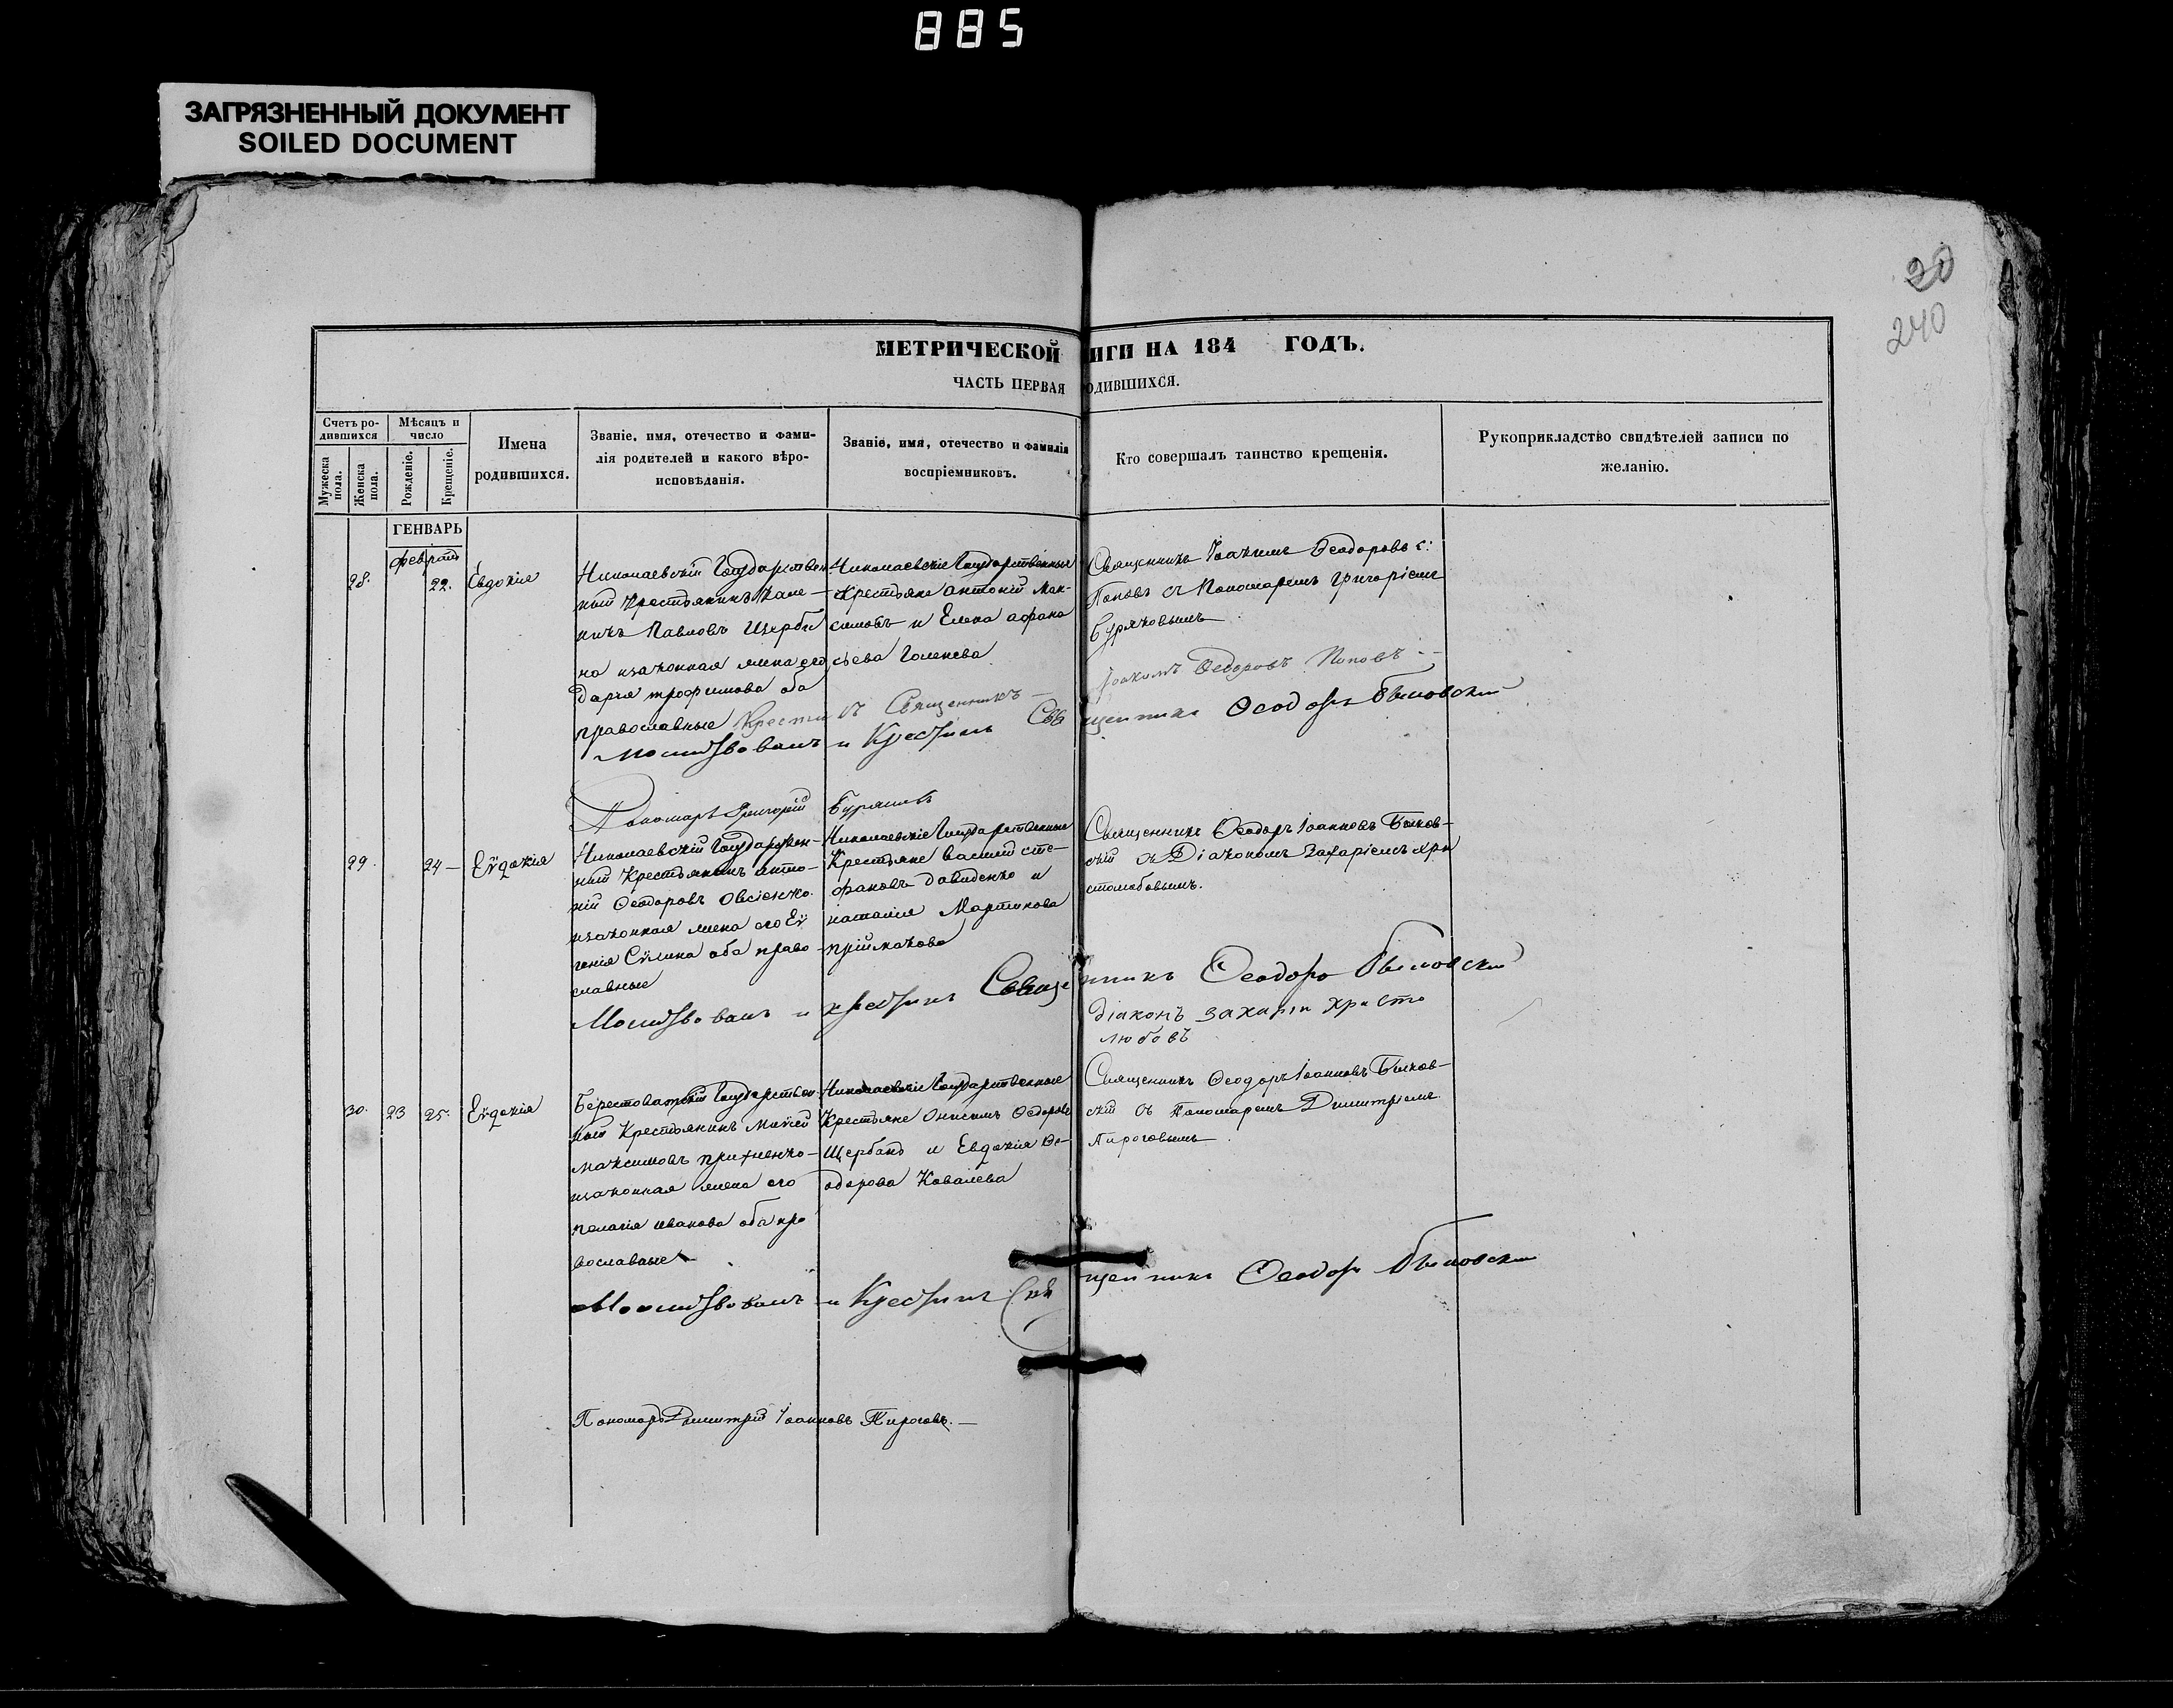 885
ЗАГРЯЗНЕННЫЙ ДОКУМЕНТ
SOILED DOCUMENT
20
240
МЕТРИЧЕСКОЙ ИГИ НА 184 ГОДЪ.
ЧАСТЬ ПЕРВАЯ ОДИВШИХСЯ.
Счетъ ро-
дившихся
Мѣсяцъ и
число
Мужеска
пола.
Женска
пола.
Рожденіе.
Крещеніе.
Имена
родившихся.
Званіе, имя, отечество и фами-
лія родителей и какого вѣро-
исповѣданія.
Званіе, имя, отечество и фамилія
воспріемниковъ.
Кто совершалъ таинство крещенія.
Рукоприкладство свидѣтелей записи по
желанію.
ГЕНВАРЬ
февраль
28.
22.
Евдокія
Николаевскій Государствен
ный Крестьянинъ
никъ Павловъ Щерби
на изаконная жена его
Дарія трофимова оба
православные
Николаевскіе Государственные
Крестьяне Антоній Мак-
симовъ и Елена Афана
сьева Голенева
Священникъ Іоакимъ Ѳеодоровъ с:
Поповъ съ Пономаремъ Григоріемъ
Буряковымъ
Крестилъ Священникъ Іоакимъ Ѳедоровъ Поповъ
Молитвовалъ и Крестилъ Священникъ Ѳеодоръ Быковскій
Пономарь Григорій Буряковъ
29.
24
Еѵдокія
Николаевскій Государствен-
ный Крестьянинъ Анто-
ній Ѳеодоровъ Овсіенко
изаконная жена его Еѵ
генія Сѵлина оба право-
славные
Николаевскіе Государственные
Крестьяне Василій Сте-
фановъ Давиденко и
наталія Мартинова
пріймакова
Священникъ Ѳеодоръ Іоанновъ Быков-
скій съ Діакономъ Захаріемъ Хри
столюбовымъ.
Молитвовалъ и крестилъ Священникъ Ѳеодоръ Быковскій
діаконъ Захарій Христо
любовъ
30.
23
25.
Еѵдокія
Берестоватскій Государствен
ный Крестьянинъ
Максимовъ прихненко
изаконная жена его
пелагія иванова оба пра
вославные
Николаевскіе Государственные
Крестьяне Онисимъ Ѳедоровъ
Щербакъ и Евдокія Ѳе-
одорова Ковалева
Священникъ Ѳеодоръ Іоанновъ Быков-
скій съ Пономаремъ Димитріемъ
Пироговымъ
Молитвовалъ и Крестилъ Священникъ Ѳеодоръ Быковскій
Пономарь Димитрій Іоанновъ Пироговъ.